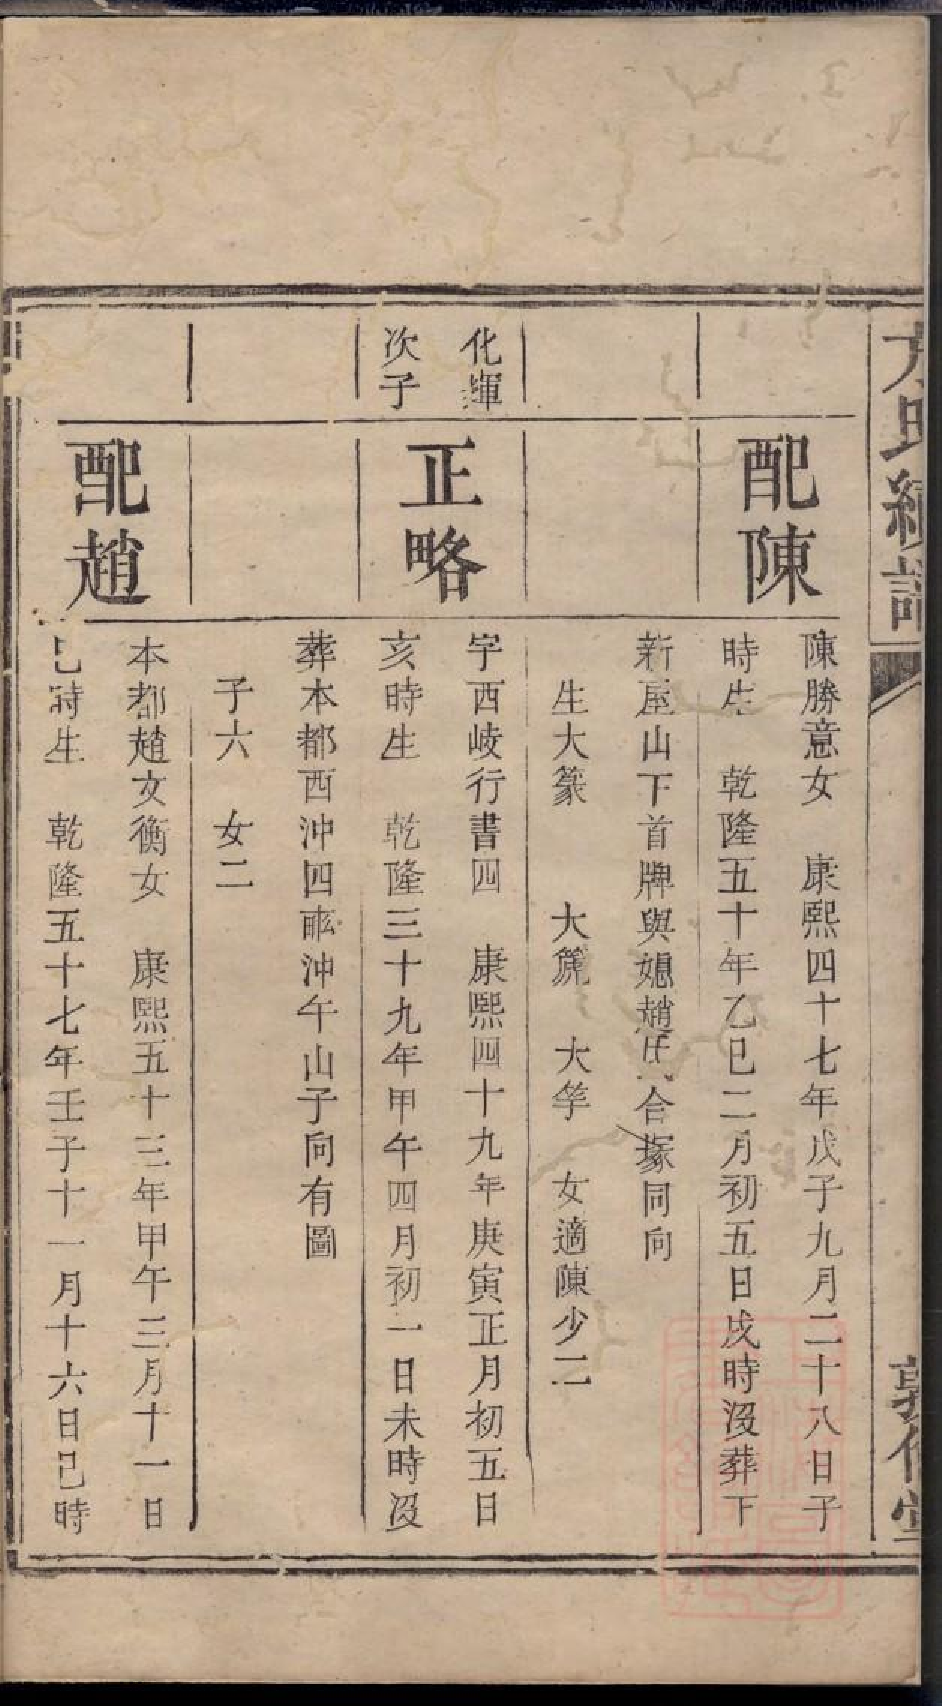 氏續譜
配陳
陳勝意女 康熙四十七年戊子九月二十八日子
時生 乾隆五十年乙巳二月初五日戌時沒葬下
新屋山下首牌與媳趙氏合塚同向
生大篆 大箎 大竿 女適陳少二
化輝
次子
正略
字西岐行書四 康熙四十九年庚寅正月初五日
亥時生 乾隆三十九年甲午四月初一日未時沒
葬本都西沖四畝沖午山子向有圖
子六 女二
配趙
本都趙文衡女 康熙五十三年甲午三月十一日
巳時生 乾隆五十七年壬子十一月十六日巳時